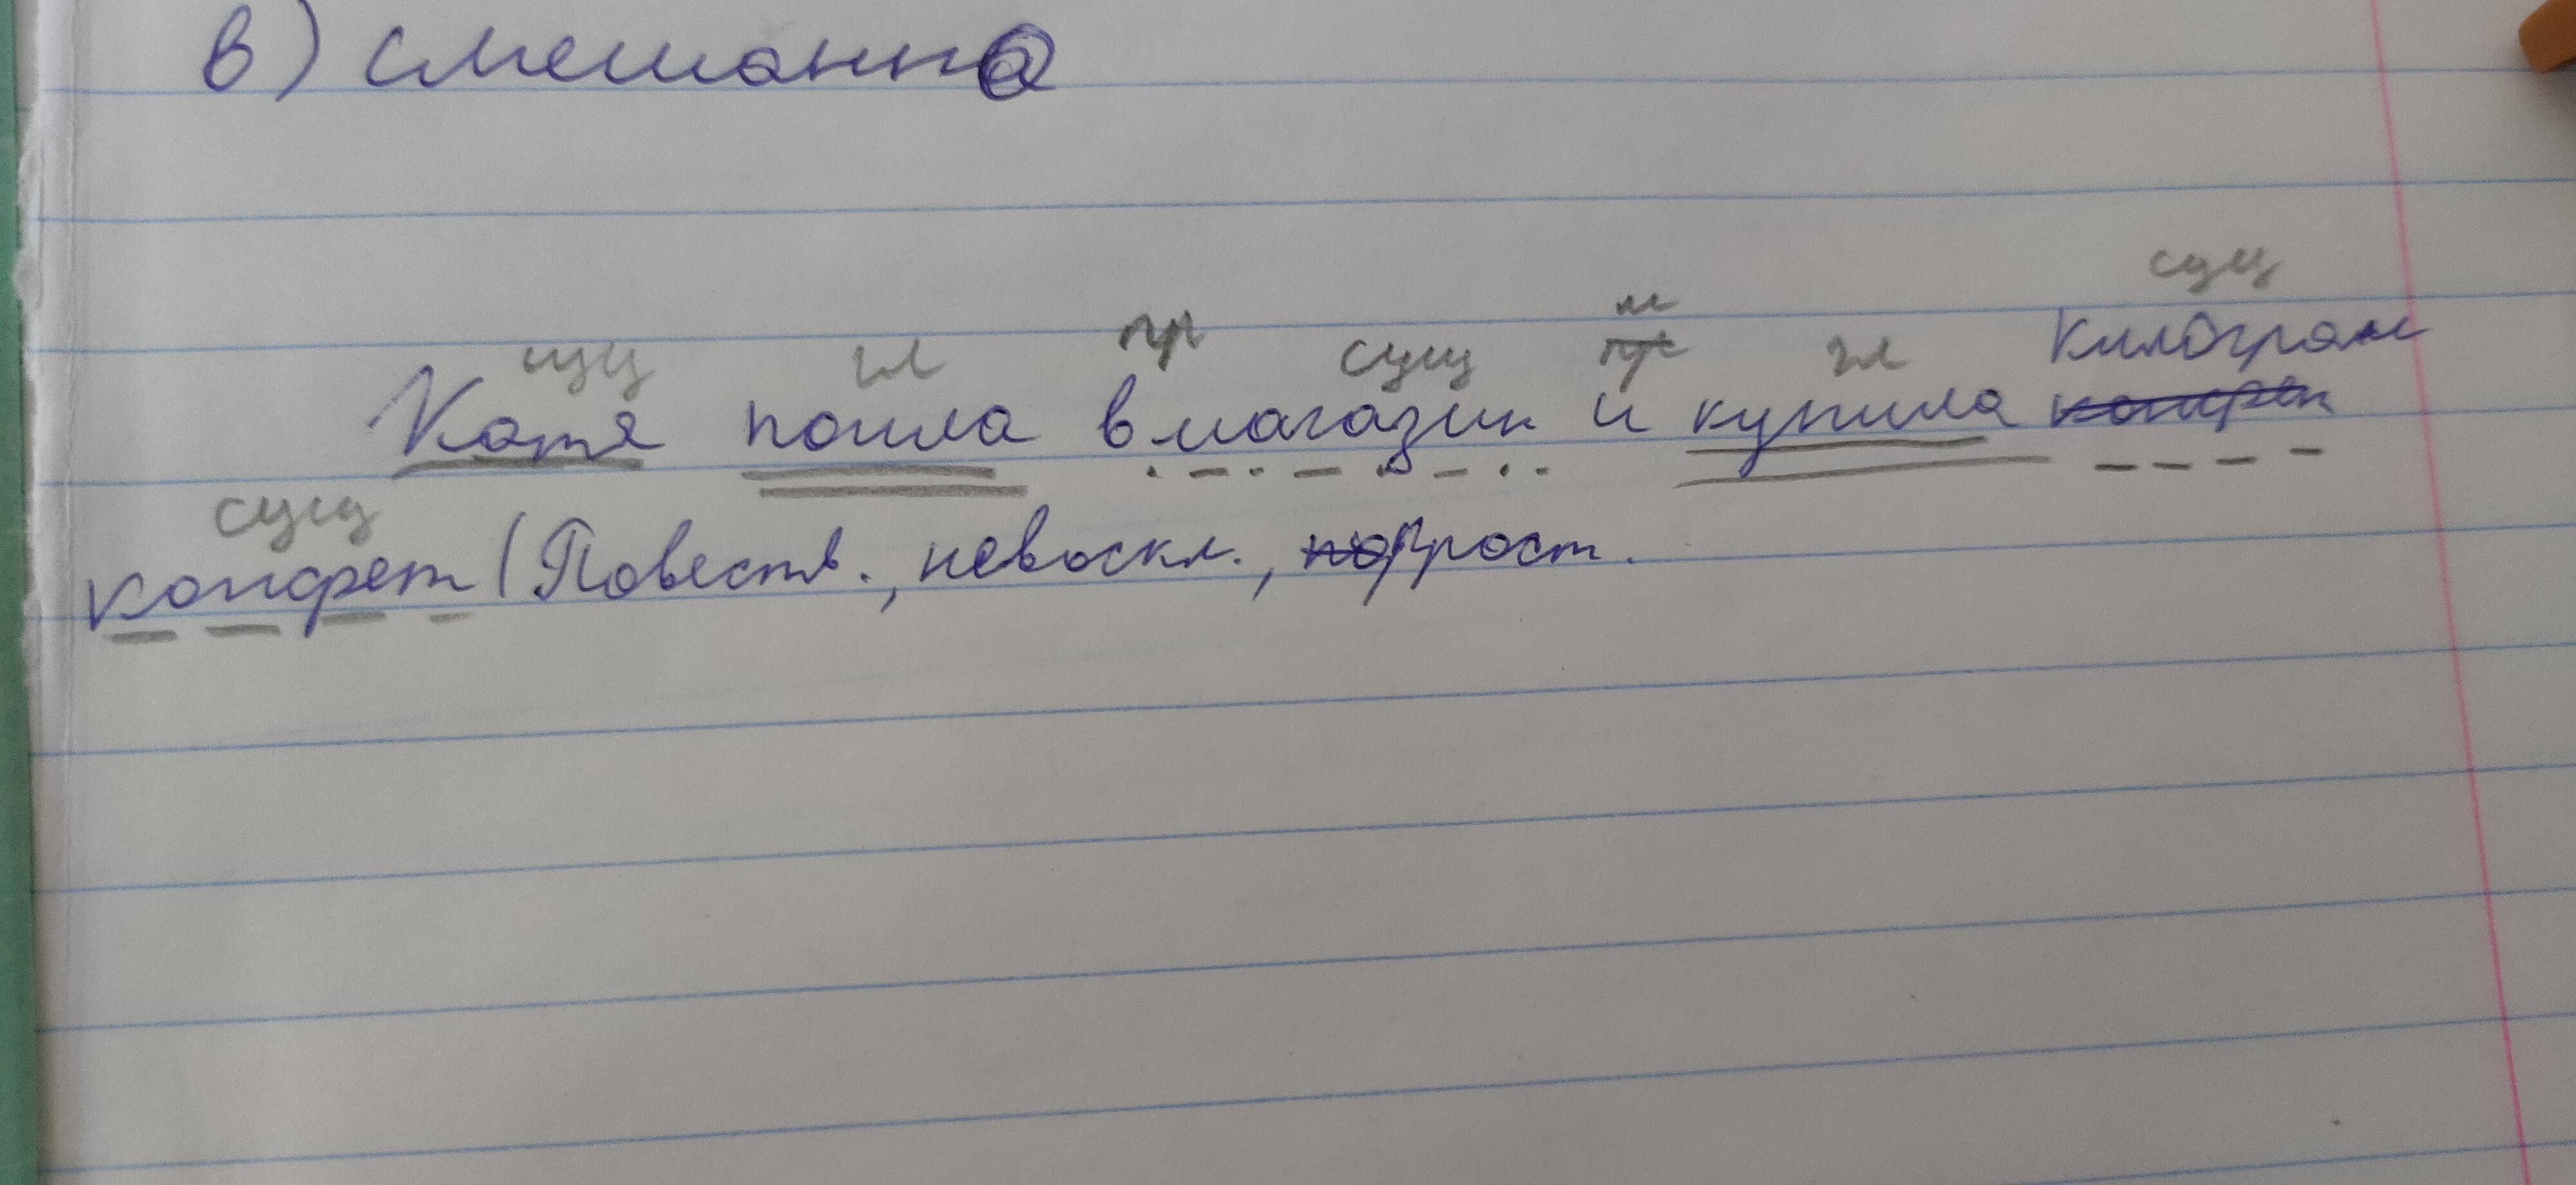 в) смешанно
сущ гл пр сущ гл сущ
Катя пошла в магазин и купила килограм
сущ
конфет (Повеств., невоскл., прост.